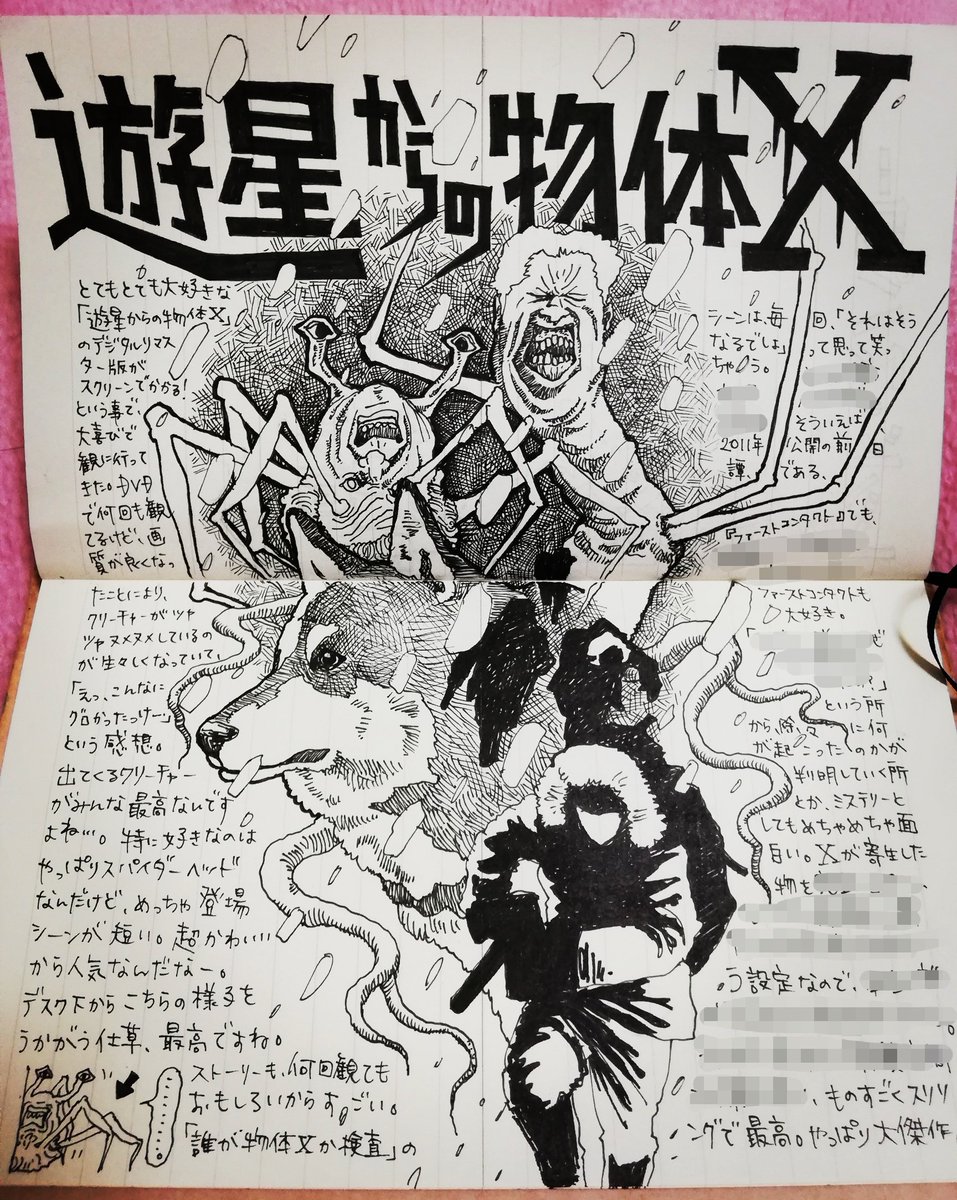 遊星からの物体X
とてもとても大好きな
「遊星からの物体X」
のデジタルリマス
ター版が
スクリーンでかかる!
という事で、
大喜びで
観に行って
きた。DVD
で何回も観
てるけど、画
質が良くなっ
たことにより、
クリーチャーがツヤ
ツヤヌメヌメしているの
が生々しくなっていて、
「えっ、こんなに
グロかったっけー」
という感想。
出てくるクリーチャー
がみんな最高なんです
よね…。特に好きなのは
やっぱりスパイダーヘッド
なんだけど、めっちゃ登場
シーンが短い。超かわいい
から人気なんだなー。
デスク下からこちらの様子を
うかがう仕草、最高ですね。
ストーリーも、何回観ても
おもしろいからすごい。
「誰が物体Xか検査」の
シーンは、毎回、「それはそう
なるでしょ」って思って笑っ
ちゃう。
そういえば
2011年公開の前日
譚、である、
『ファーストコンタクト』でも、
ファーストコンタクトも
大好き。
という所
から、徐々に何
が起こったのかが
判明していく所
とか、ミステリーと
してもめちゃめちゃ面
白い。Xが寄生した
物を
う設定なので、
、ものすごくスリリ
ングで最高。やっぱり大傑作